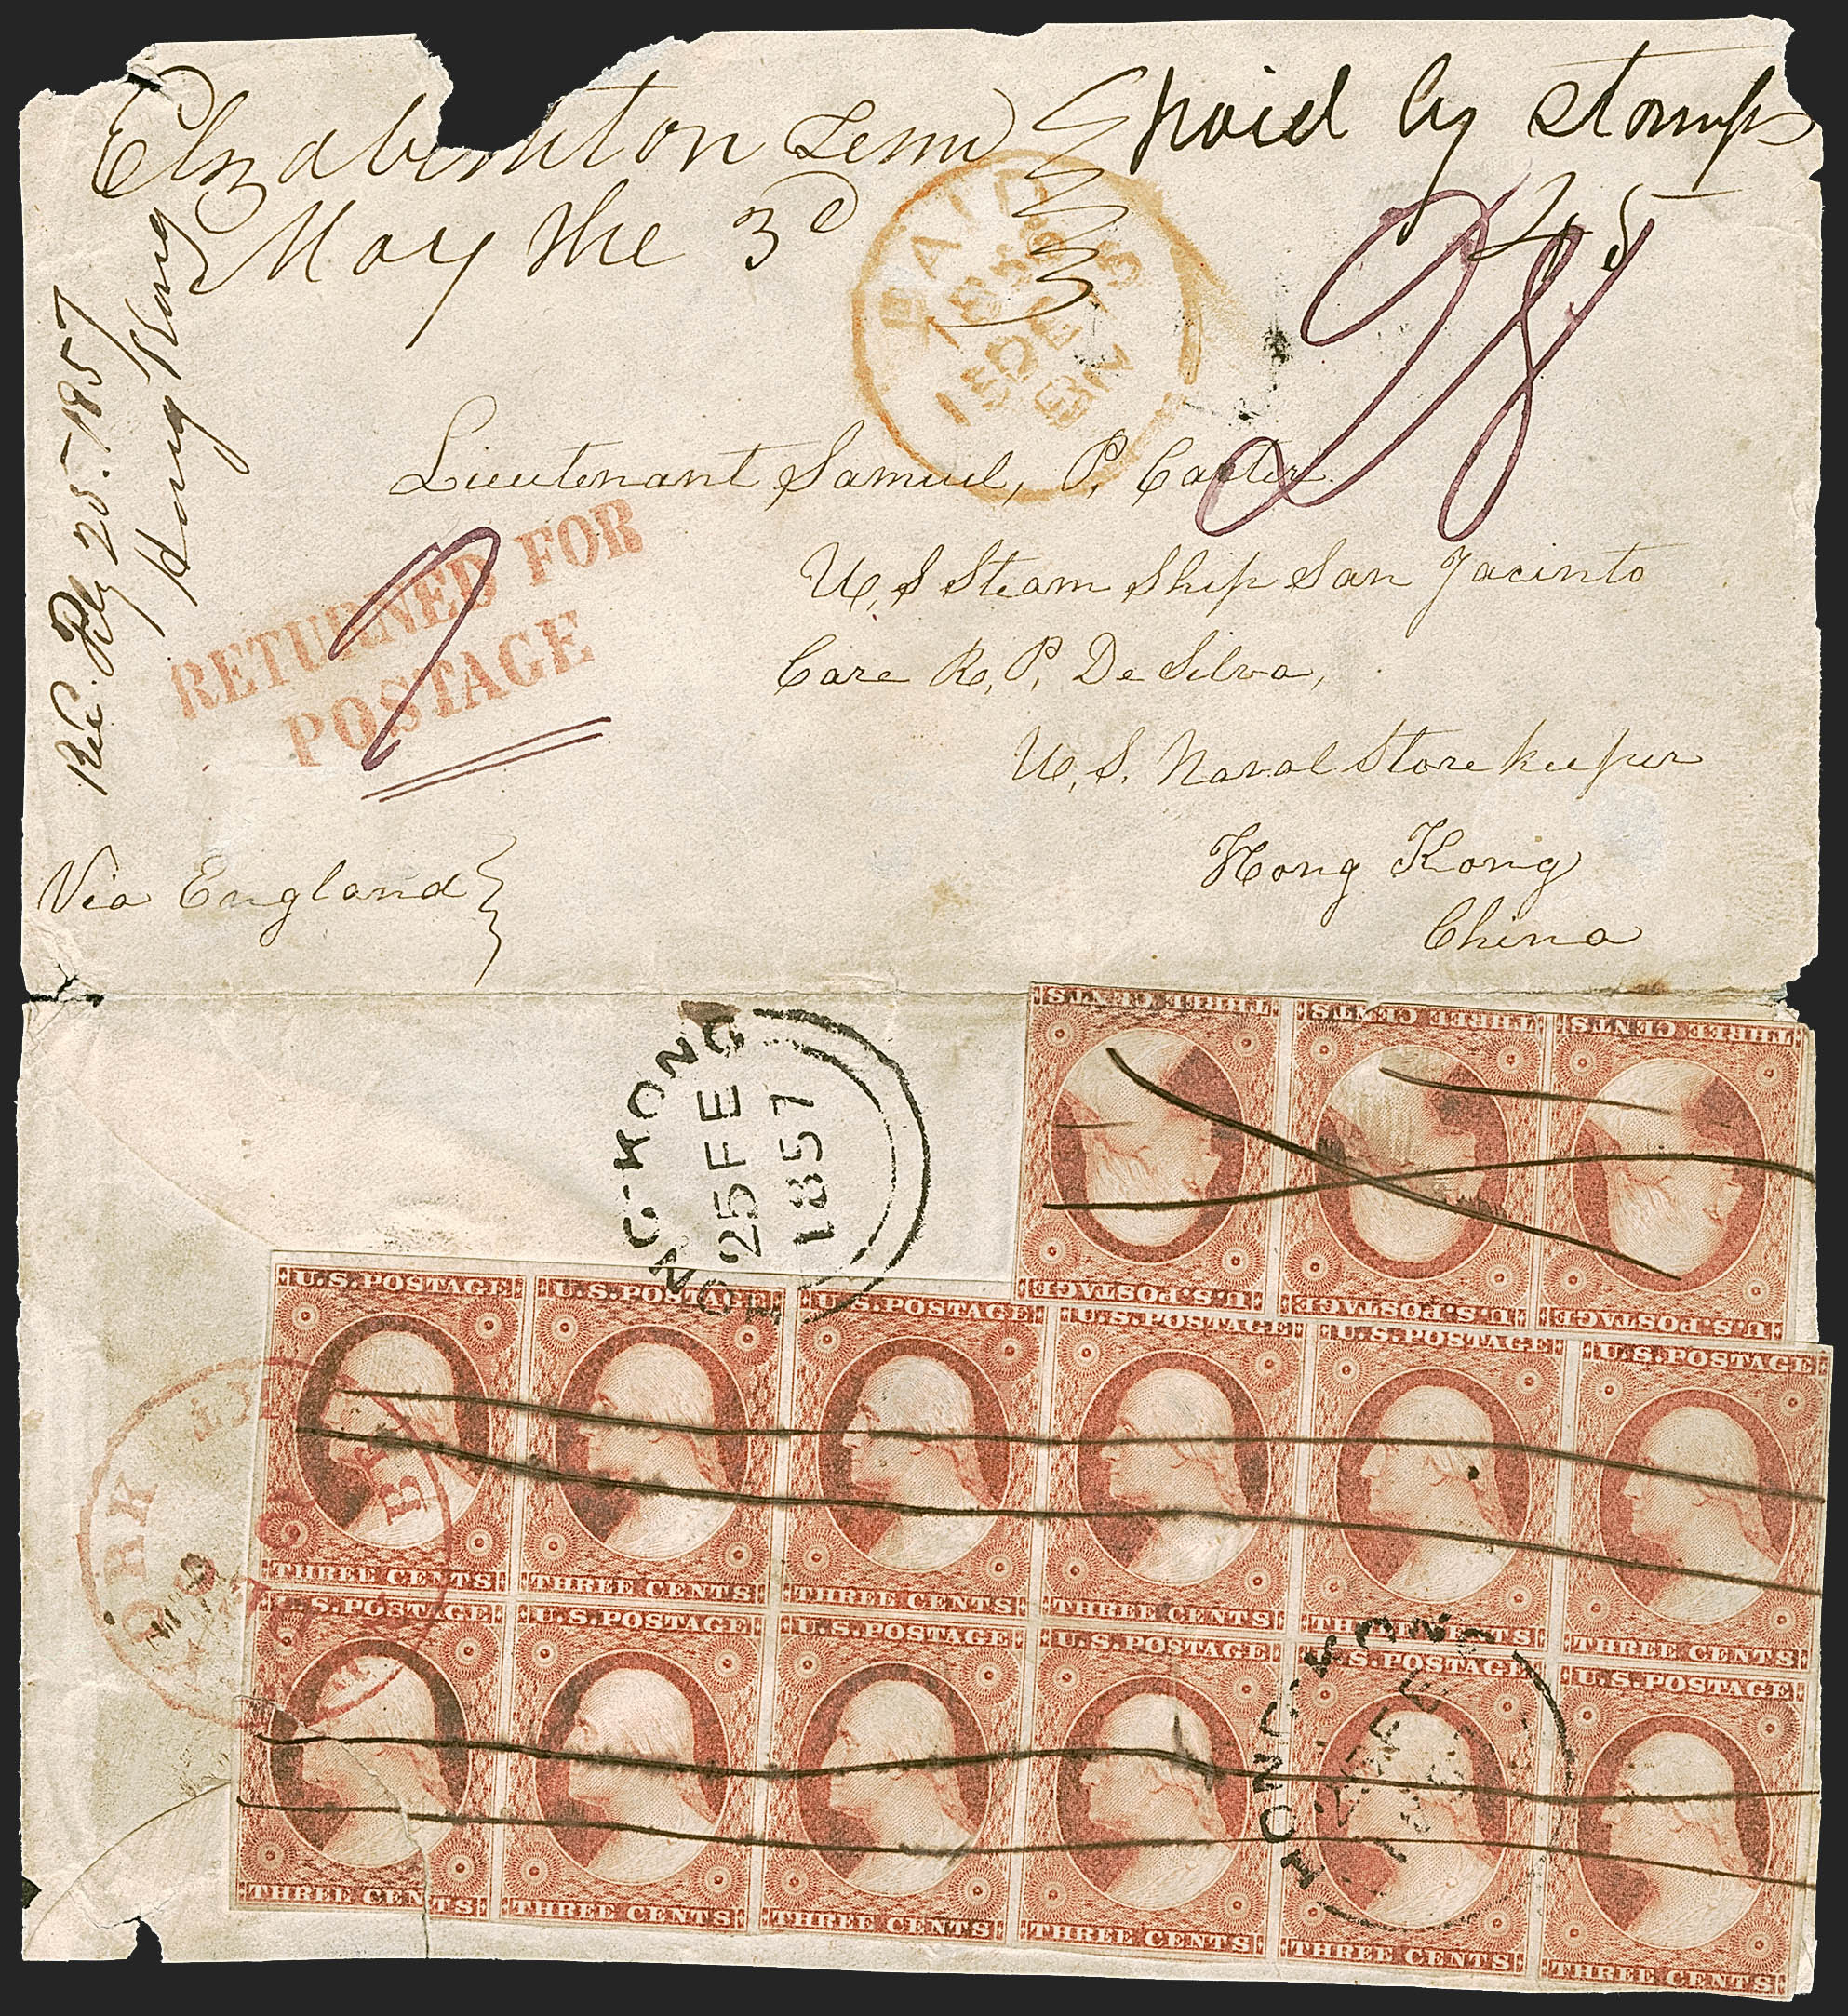 Elizabethton Tenn
May the 3d
paid by stamps
45
PAID
15 DE 15
28
Rec. Feby 25. 1857
Hong Kong
Lieutenant Samuel, P. Carter.
U, S Steam Ship San Jacinto
Care R, P, De Silva,
U, S. Naval Storekeeper
Hong Kong
China
RETURNED FOR
POSTAGE
Via England
HONG-KONG
25 FE
1857
THREE CENTS THREE CENTS THREE CENTS
U.S.POSTAGE U.S.POSTAGE U.S.POSTAGE
U.S.POSTAGE U.S.POSTAGE U.S.POSTAGE U.S.POSTAGE U.S.POSTAGE U.S.POSTAGE
THREE CENTS THREE CENTS THREE CENTS THREE CENTS THREE CENTS THREE CENTS
U.S.POSTAGE U.S.POSTAGE U.S.POSTAGE U.S.POSTAGE U.S.POSTAGE U.S.POSTAGE
THREE CENTS THREE CENTS THREE CENTS THREE CENTS THREE CENTS THREE CENTS